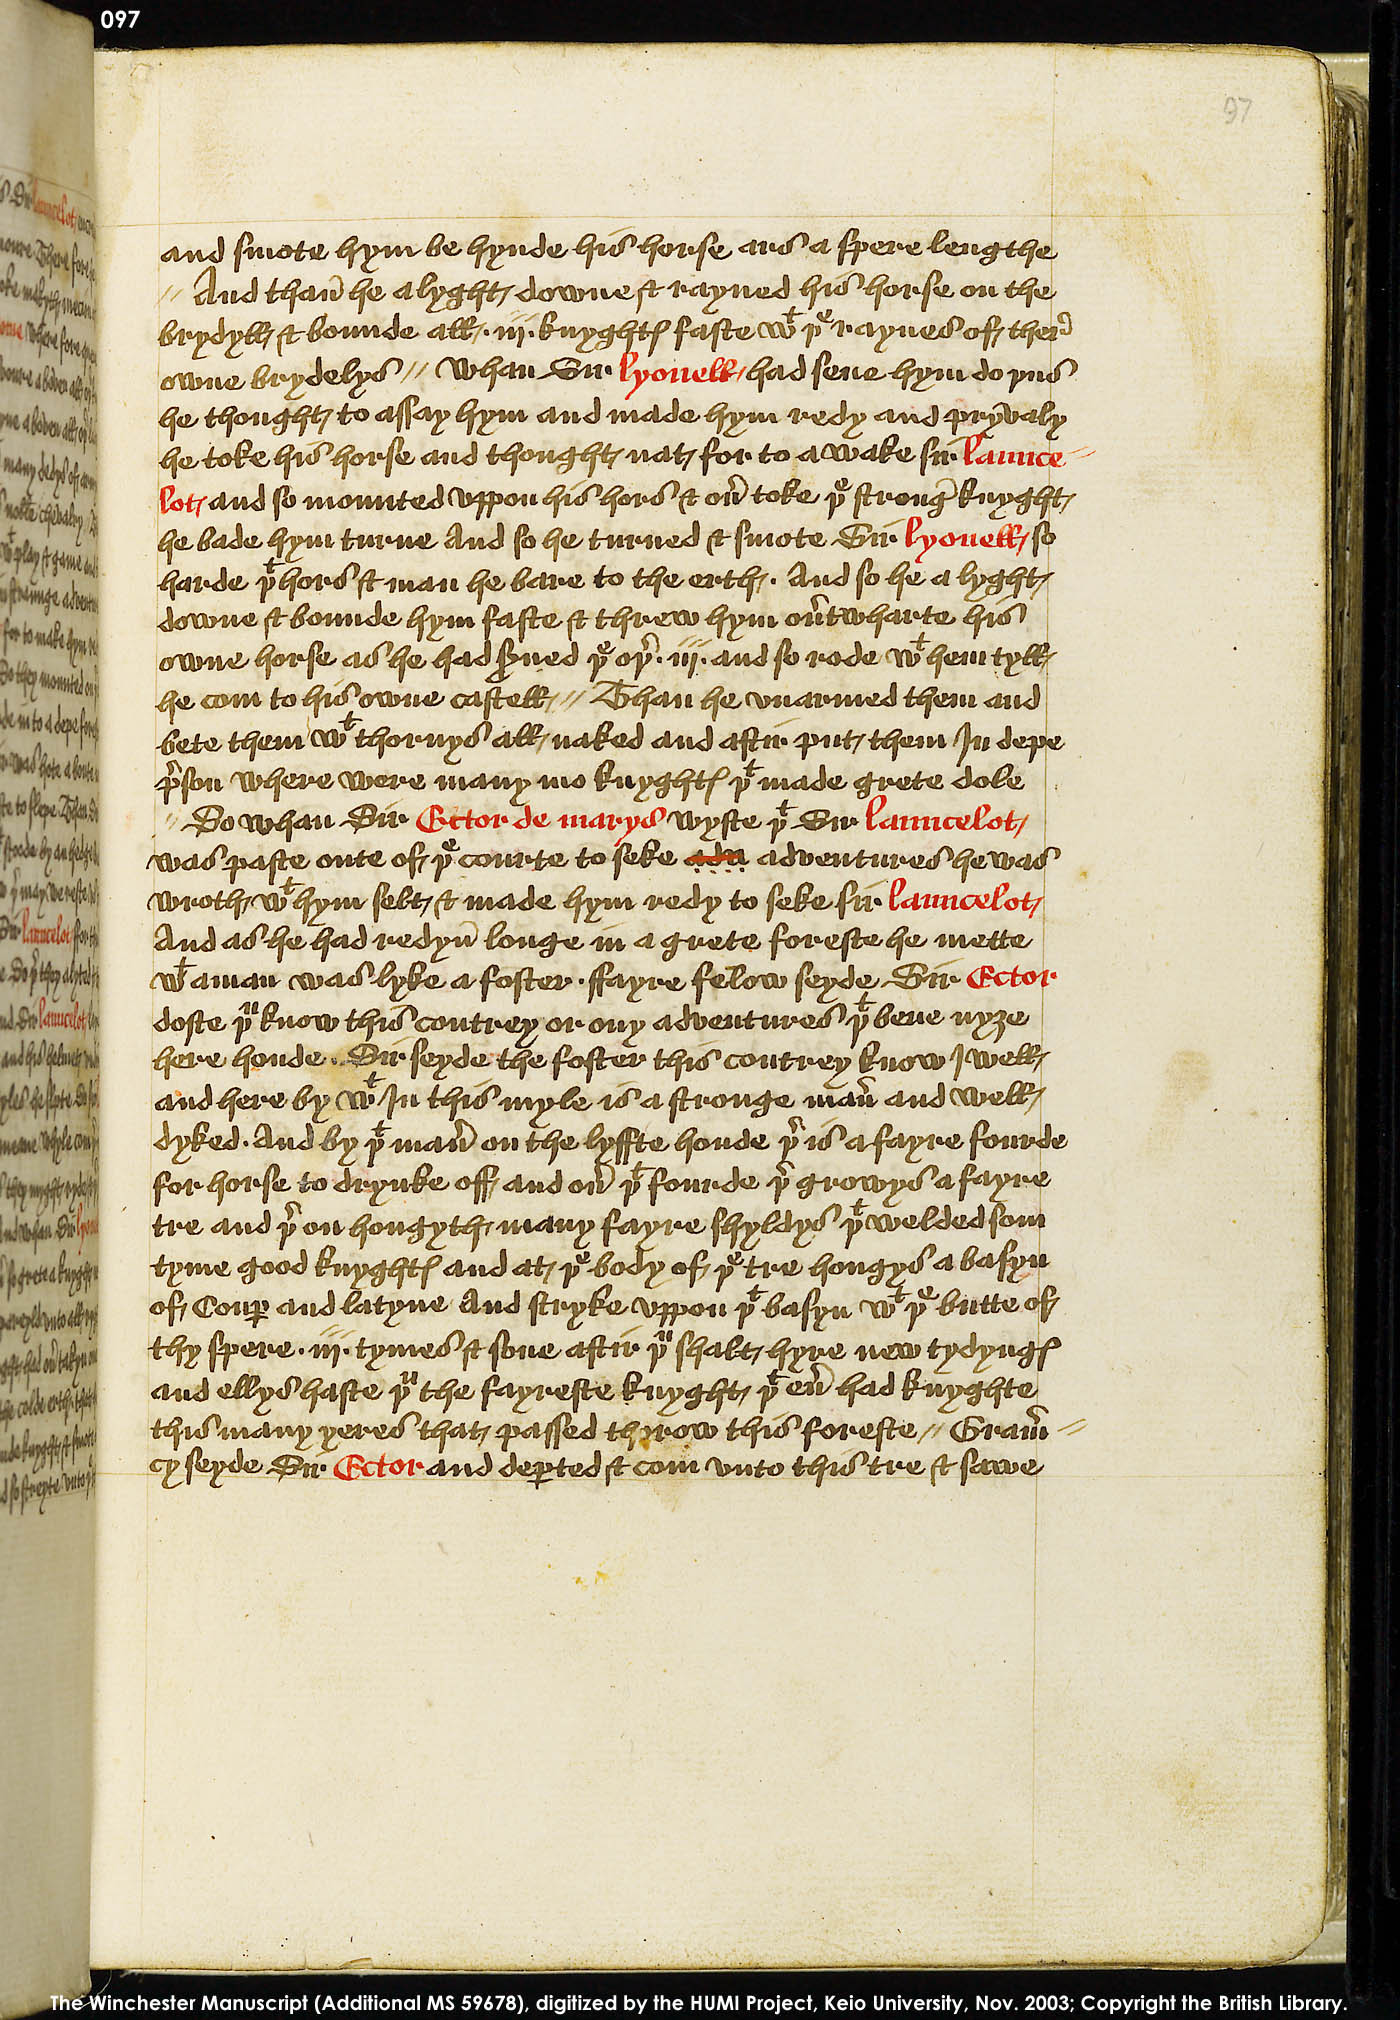 097
97
and smote hym be hynde his horse ars a spere lengthe
// And than̄ he alyght downe & rayned his horse on the
brydyll & bounde all .iij. knyghtꝭ faste wᵗ þᵉ raynes of ther̄
owne brydelys // Whan Sir lyonell had sene hym do þus
he thought to assay hym and made hym redy and pryvaly
he toke his horse and thought nat for to a wake sir launce //
lot and so mounted vppon his hors & oū toke þᵉ stronḡ knyght
he bade hym turne And so he turned & smote Sir lyonell so
harde þᵗ hors & man he bare to the erth . And so he a lyght
downe & bounde hym faste & threw hym oūtwharte his
owne horse as he had s̄ued þᵉ oþ̄ .iij. and so rode wᵗ hem tyll
he com to his owne castell // Than he vnarmed them and
bete them wᵗ thornys all naked and aftir put them In depe
p̄son where were many mo knyghtꝭ þᵗ made grete dole
// So whan Sir Ector de marys wyste þᵗ Sir launcelot
was paste oute of þᵉ courte to seke adu adventures he was
wroth wᵗ hym self & made hym redy to seke sir launcelot
And as he had redyn̄ longe in a grete foreste he mette
wᵗ a man was lyke a foster . ffayre felow seyde Sir Ector
doste þᵘ know this contrey or ony adventures þᵗ bene nyȝe
here honde . Sir seyde the foster this contrey know I well
and here by wᵗ In this myle is a stronge man̄ and well
dyked . And by þᵗ man̄ on the lyffte honde þ̄ is a fayre fourde
for horse to drynke off and oū þᵗ fourde þ̄ growys a fayre
tre and þ̄ on hongyth many fayre shyldys þᵗ welded som
tyme good knyghtꝭ and at þᵉ body of þᵉ tre hongys a basyn
of Couꝑ and latyne And stryke vppon þᵗ basyn wᵗ þᵉ butte of
thy spere .iij. tymes & sone aftir þᵘ shalt hyre new tydyngꝭ
and ellys haste þᵘ the fayreste knyght þᵗ eū had knyghte
this many yeres that passed thorow this foreste // Gram̄ //
cy seyde Sir Ector and deꝑted & com vnto this tre & sawe
The Winchester Manuscript (Additional MS 59678), digitized by the HUMI Project, Keio University, Nov. 2003; Copyright the British Library.